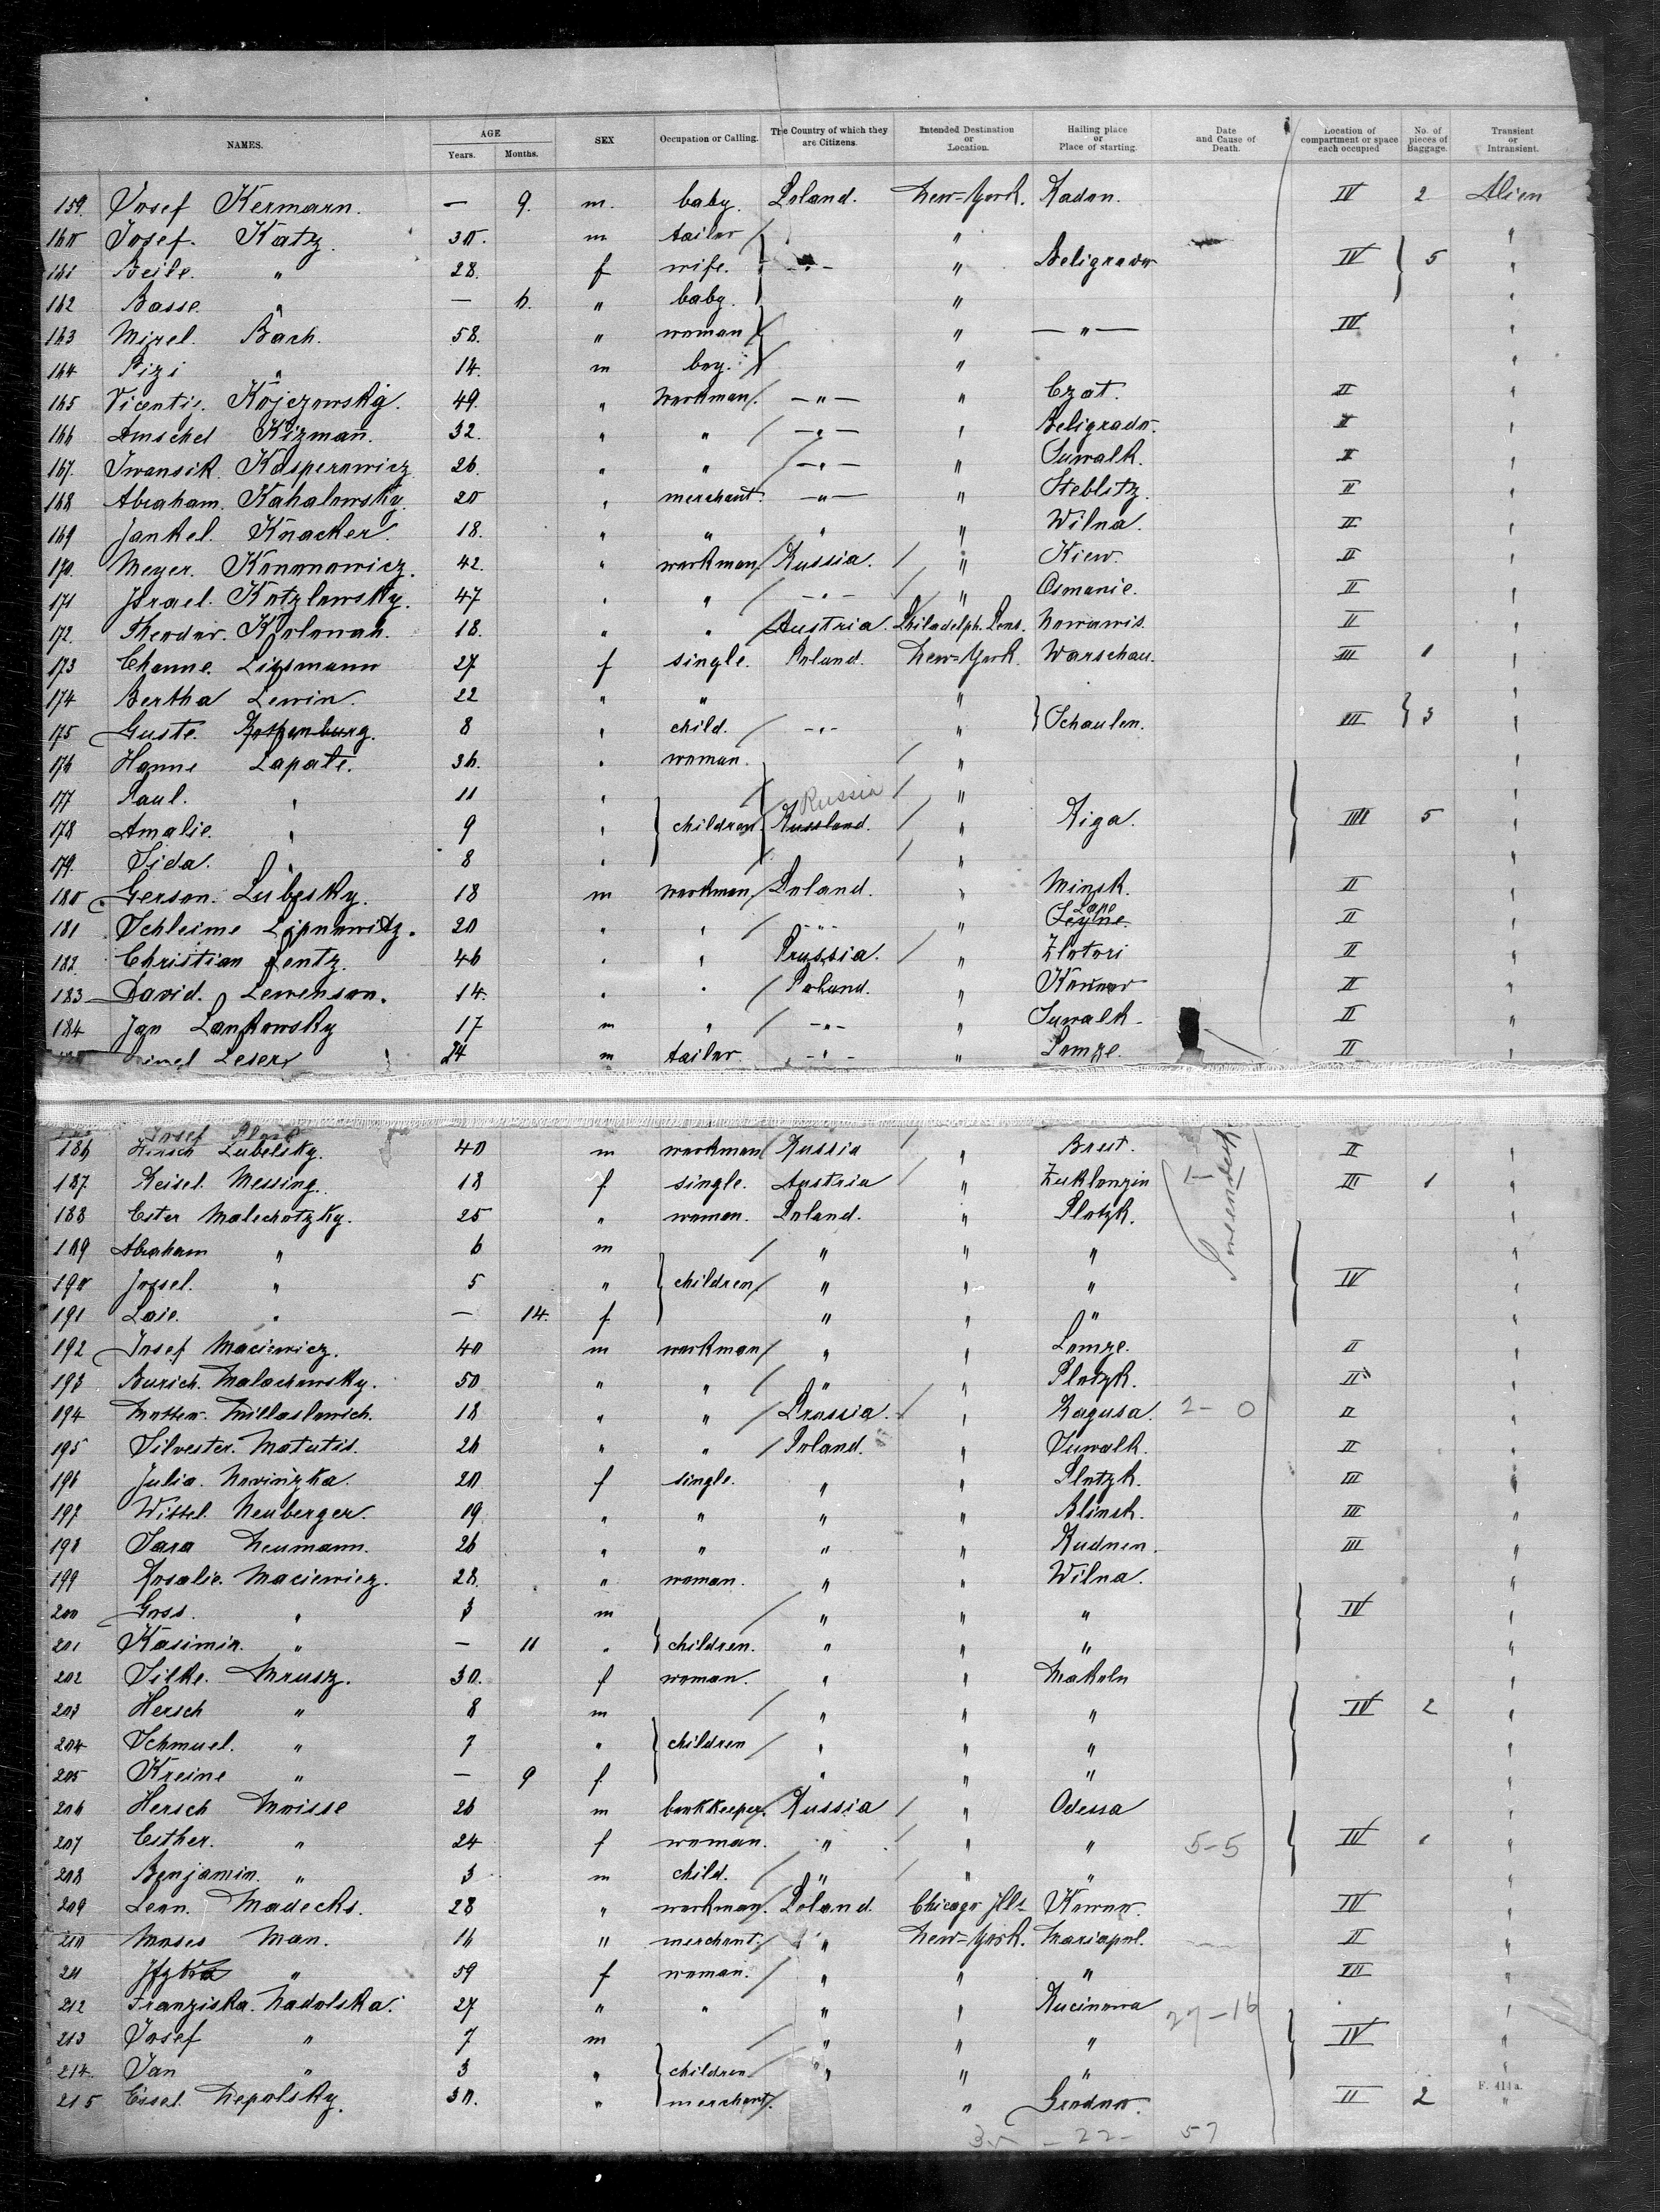 NAMES. AGE Years. Months. SEX Occupation or Calling. The Country of which they are Citizens. Intended Destination or Location. Hailing place or Place of starting. Date and Cause of Death. Location of compartment or space each occupied No. of pieces of Baggage. Transient or Intransient.
159. Josef Kermann. — 9. m. baby. Poland. New-York. Radon. IV 2 Alien
160 Josef. Katz. 30. m tailor " "
161 Beile. " 28. f wife. — " — " Beligradow IV 5 "
162 Basse. " — 6. " baby. " "
163 Mizel. Bach. 58. " woman " — " — IV "
164 " 14. m boy. " "
165 Vicentis. Kojczowsky. 49. " workman. — " — " Czat. II "
166 Amschel Kizmann. 32. " " — " — " Beligradow. II "
167. Iwansik. Kasperowicz 26. " " — " — " Suwalk. II "
168 Abraham. Kahalowsky. 20 " merchant. — " — " Steblitz. II "
169 Jankel. Knacker. 18. " " " " Wilna. II "
170. Meyer. Kononowicz. 42. " workman Russia. " Kiew. II "
171 Israel. Kotzlowsky. 47 " " — " — " Osmanie. II "
172. Theodor. Kolowah. 18. " " Austria. Philadelph. Pens. Nowawis. II "
173 Channe. Lipsmann 27 f single. Poland. New-York. Warschau. III 1 "
174 Bertha Lewin. 22 " " " "
175 Guste. Rothenburg. 8 " child. — " — " Schaulen. III 3 "
176 Hanne Lapate. 36. " woman. " "
177 Paul. " 11 " Russia " "
178 Amalie. " 9 " children Russland. " Riga. IIII 5 "
179. Sida. " 8 " " "
180 Gerson. Lubesky. 18 m workman Poland. " Minsk. II "
181 Schleime Lipnowitz. 20 " " " " II "
182. Christian Lentz. 46 " " Prussia. " Zlotori II "
183 David. Lewenson. 14. " " Poland. " Kownow II "
184 Jan Lankowsky 17 m " — " — " Suwalk II "
Leser 24 m tailor — " — " Lomze. II "
Josef
186 Hirsch Lubelsky. 40 m workman Russia " Brest. II "
187. Reisel. Messing. 18 f single. Austria " Zuklonzin 1— III 1 "
188 Ester Malschotzky. 25 " woman. Poland. " Plotzk. "
189 Abraham " 6 m " " " "
190 Jossel. " 5 " children " " " IV "
191 Laie. " — 14. f " " " "
192 Josef Maciewicz. 40 m workman " " Lomze. II "
193 Burich. Malachowsky. 50 " " " " Plotzk. II "
194 Millaslowich. 18 " " Prussia. " Ragusa. 2— 0 II "
195 Silvester. Matutis. 26 " " Poland. " Suwalk. II "
196 Julia. Nowinzka. 20 f single. " " Plotzk. III "
197 Wittel. Neuberger. 19 " " " " Blinsk. III "
198 Sara Neumann. 26 " " " " Rudnen. III "
199 Rosalie. Maciewicz. 28. " woman. " " Wilna. "
200 Goss. " 3 m " " " IV "
201 Kasimir. " — 11 " children. " " " "
202 Silke. Mrusz. 30. f woman. " " Makoln "
203 Hersch " 8 m " " " IV 2 "
204 Schmuel. " 7 " children " " " "
205 Kreine " — 9 f " " " "
206 Hersch Moisse 26 m bookkeeper. Russia " Odessa "
207 Esther. " 24 f woman. " " " 5-5 IV 1 "
208 Benjamin. " 3 m child. " " " "
209 Leon. Madecks. 28 " workman. Poland. Chicago Ills Kownow. IV "
210 Moses Man. 16 " merchant. " New-York. Mariapol. II "
211 " 59 f woman. " " " III "
212 Franziska. Nadolska. 27 " " " " Rucinowa 27-16 "
213 Josef " 7 m " " " IV "
214. Jan " 3 " children " " " "
215 Eissel. Nepolsky. 30. " merchant. " Grodnow. II 2 "
F. 414a.
35 - 22 - 57